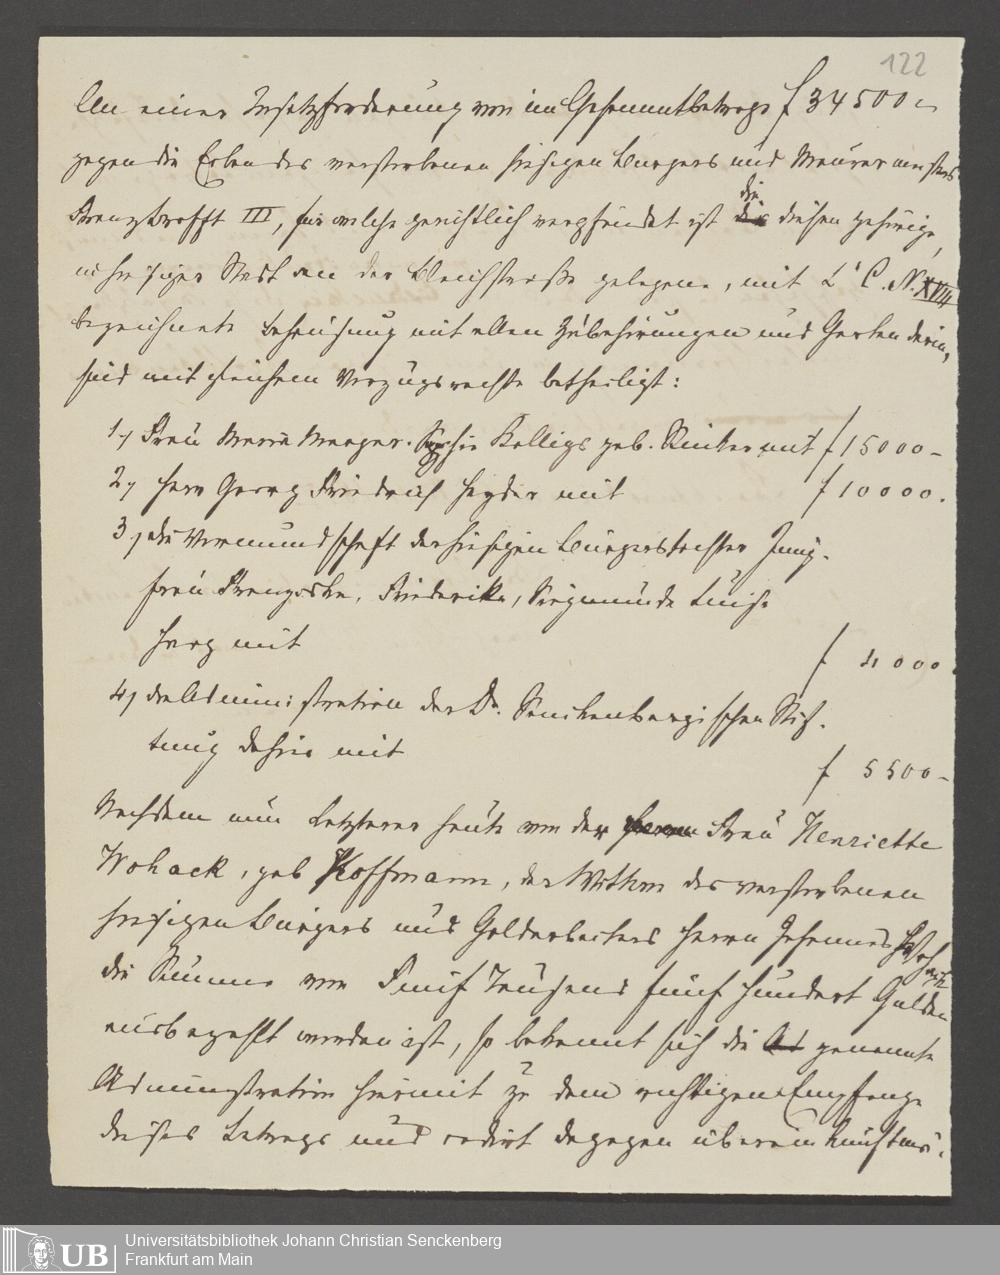 122
An einer Insatzforderung von im Gesammtbetrage f 34500 –
gegen die Erben des verstorbenen hiesigen Bürgers und Maurermeisters
Franz Brofft III, für welche gerichtlich verpfändet ist die diesen gehörige,
in hiesiger Stadt an der Bleichstraße gelegene, mit L. C. N. XVIII
bezeichnete Behausung mit allen Zubehörungen und Garten darin,
sind mit gleichem Vorzugsrechte betheiligt:
1., Frau Maria Margar. Sophie Kolligs geb. mit f 15000 –
2., Herr Georg Friedrich Heyder mit f 10000.
3., die Vormundschaft der hiesigen Bürgerstochter Jung-
frau Franziska, Friederika, Sigmunde Luise
mit f 4000.
4., die Administration der Dr. Senckenbergischen Stif-
tung dahier mit f 5500 –
Nachdem nun Letzterer heute von der Frau Henriette
Wohack, geb Hoffmann, der Wittwe des verstorbenen
hiesigen Bürgers und Goldarbeiters Herrn Johannes Wohack
die Summe von Fünf Tausend fünf hundert Gulden
ausbezahlt worden ist, so bekennt sich die genannte
Administration hiermit zu dem richtigen Empfange
dieses Betrags und cedirt dagegen übereinkunftmä-
UB
Universitätsbibliothek Johann Christian Senckenberg
Frankfurt am Main